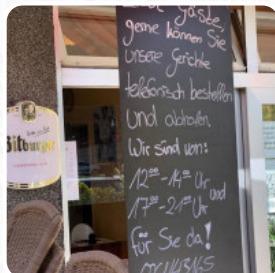 Liebe Gäste,
gerne können Sie
unsere Gerichte
telefonisch bestellen
und abholen.
Wir sind von:
12⁰⁰-14³⁰ Uhr
und
17⁰⁰-21⁰⁰ Uhr
für Sie da!
Bitburger